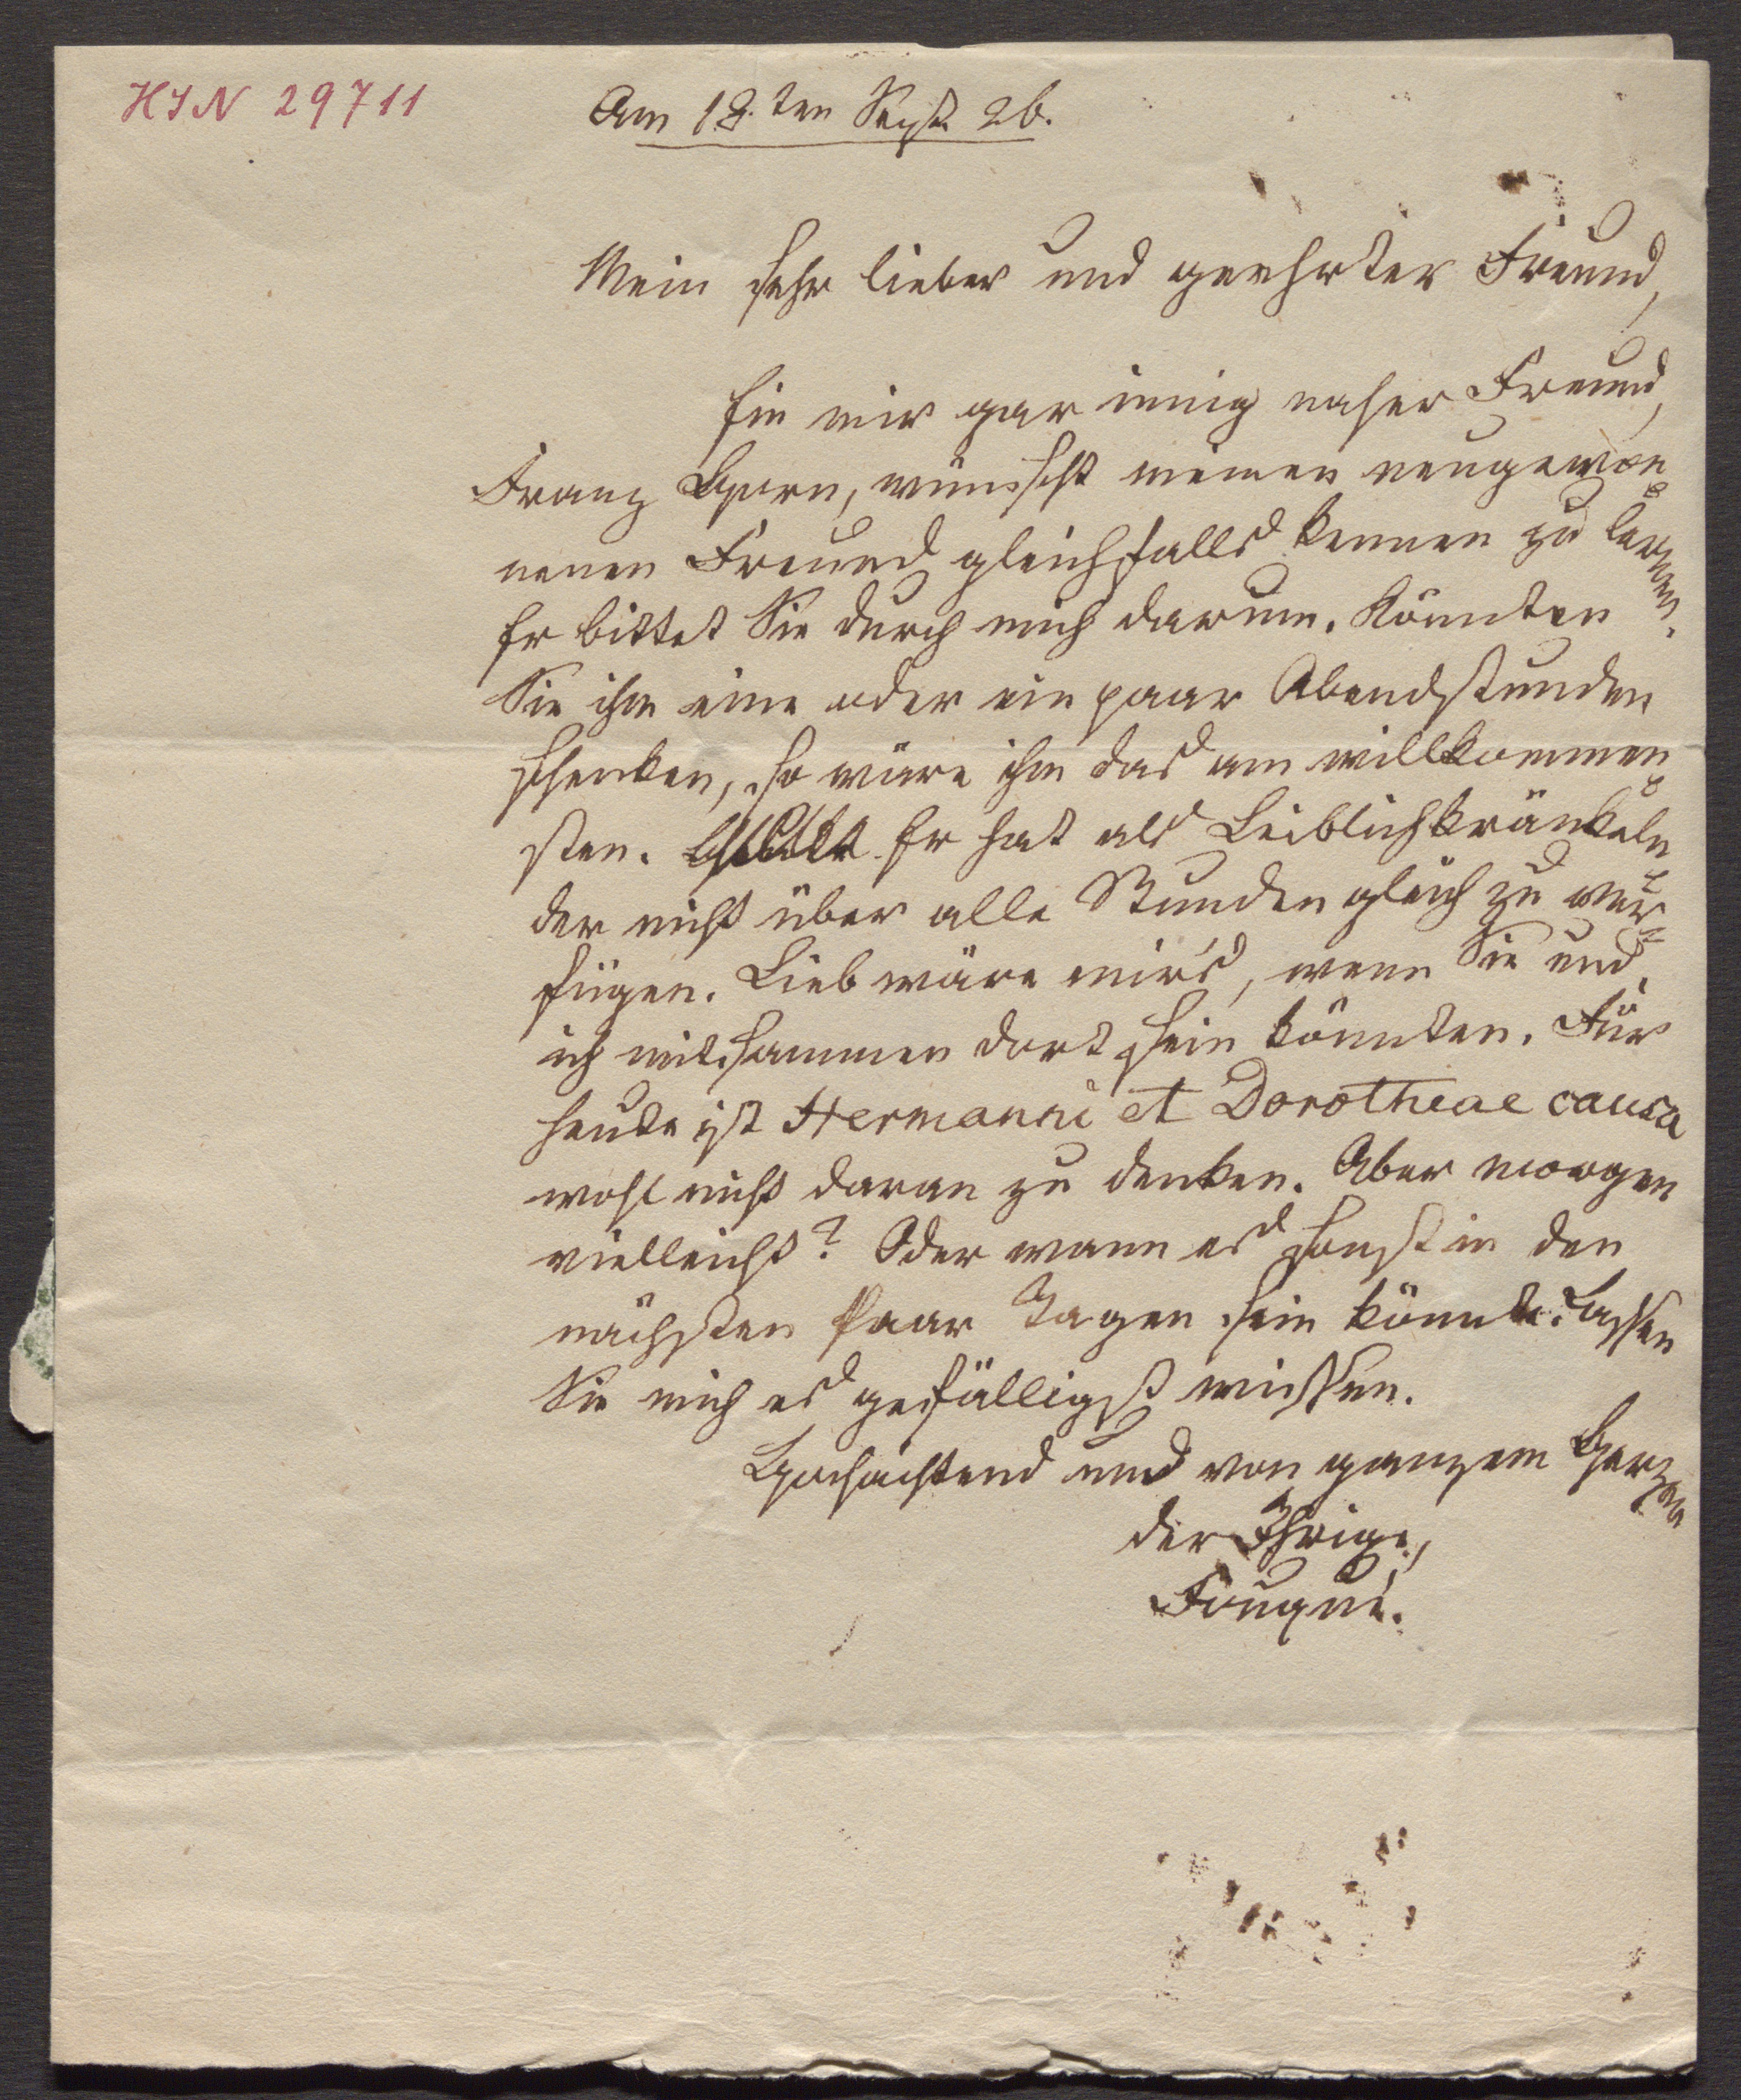 HIN 29711
Am 18.ten Sept. 26.
Mein sehr lieber und geehrter Freund,
Ein mir gar innig naher Freund,
Franz Horn, wünscht meinen neugewon-
nenen Freund gleichfalls kennen zu lernen.
Er bittet Sie durch mich darum. Könnten
Sie ihm eine oder ein paar Abendstunden
schenken, so wäre ihm das am willkommen-
sten. Er hat als Leiblichkränkeln-
der nicht über alle Stunden gleich zu ver-
fügen. Lieb wäre mir's, wenn Sie und
ich mitsammen dort sein könnten. Für
heute ist Hermanni et Dorotheae causa
wohl nicht daran zu denken. Aber morgen
vielleicht? Oder wann es sonst in den
nächsten Paar Tagen sein könnte. Lassen
Sie mich es gefälligst wissen.
Hochachtend und von ganzem Herzen
der Ihrige,
Fouqué.